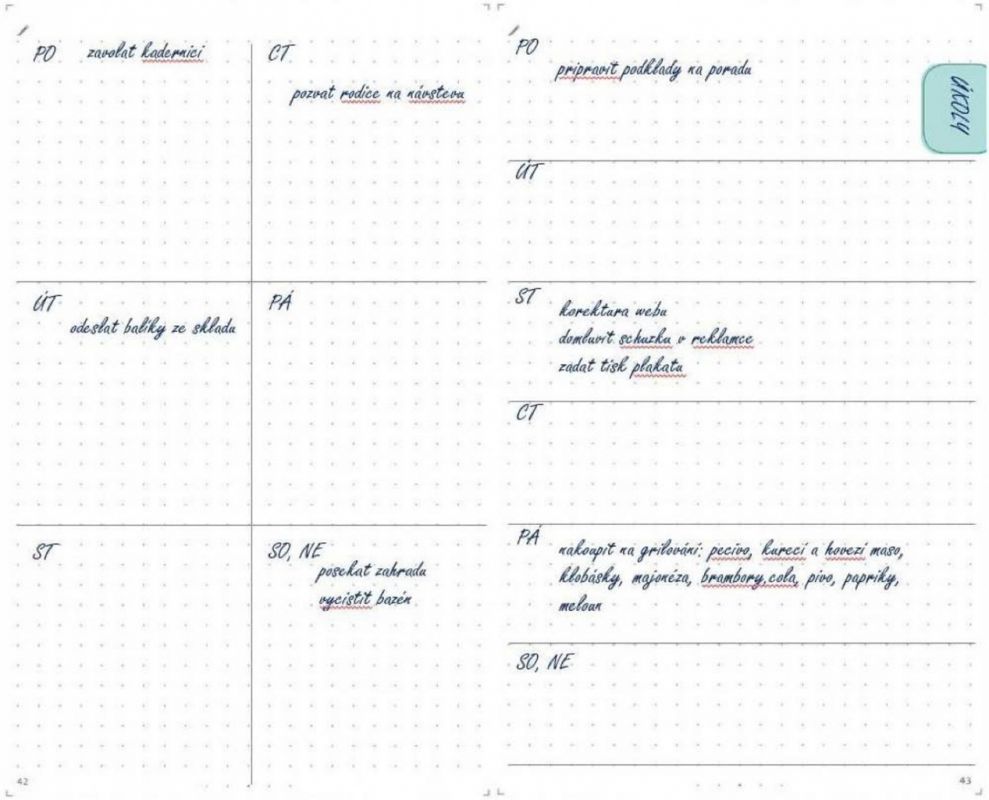 PO
zavolat kadernici
ÚT
odeslat balíky ze skladu
ST
CT
pozvat rodice na návstevu
PÁ
SO, NE
posekat zahradu
vycistit bazén
42
PO
pripravit podklady na poradu
ÚKOLY
ÚT
ST
korektura webu
domluvit schuzku v reklamce
zadat tisk plakatu
CT
PÁ
nakoupit na grilování: pecivo, kurecí a hovezí maso,
klobásky, majonéza, brambory,cola, pivo, papriky,
meloun
SO, NE
43